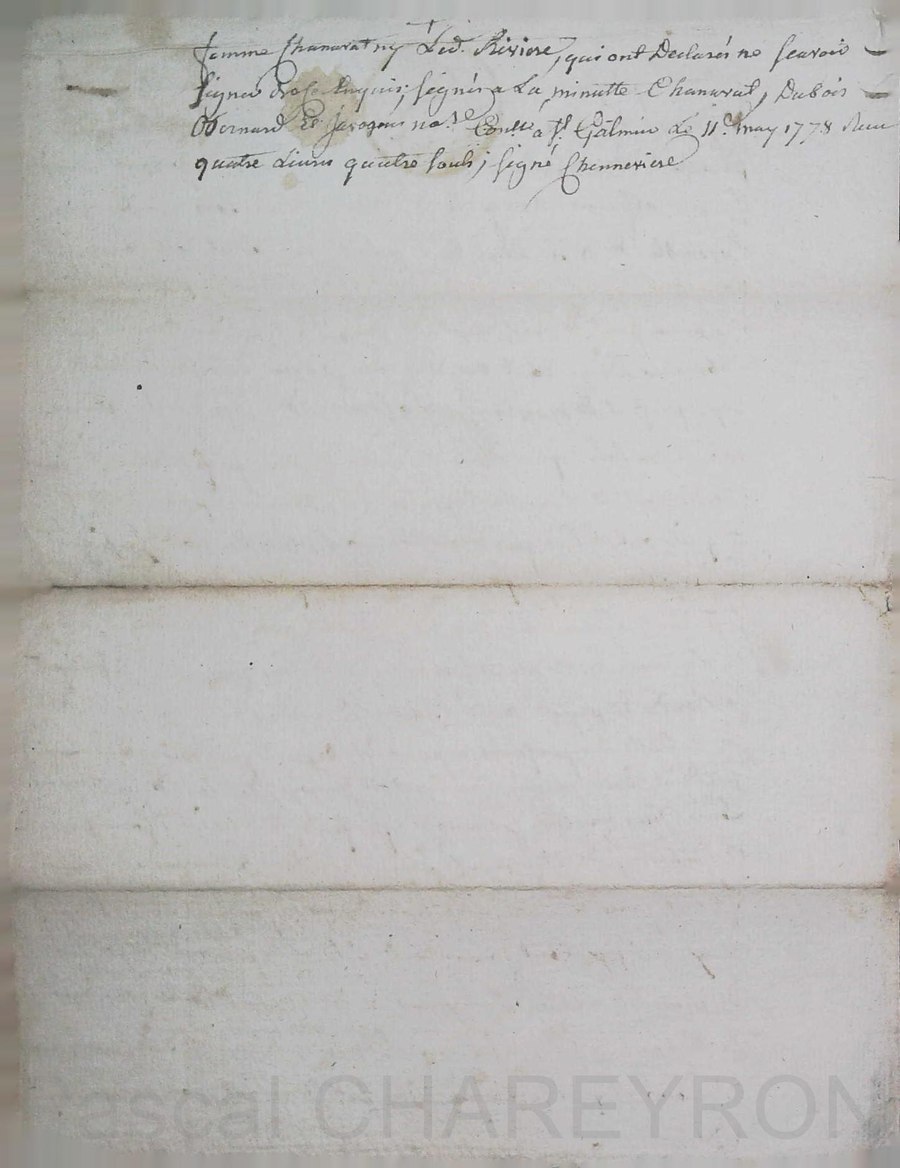 femme Chanavat ny Led. Riviere, qui ont Declarés ne scavoir
signer de ce Enquis; signés a La minutte Chanavat, Dubois
Bernard Et Jaro no.re Conlle a St. Galmier Le 11e. may 1778 Reçu
quatre Livres quatre sould; signé Channeviere
Pascal CHAREYRON